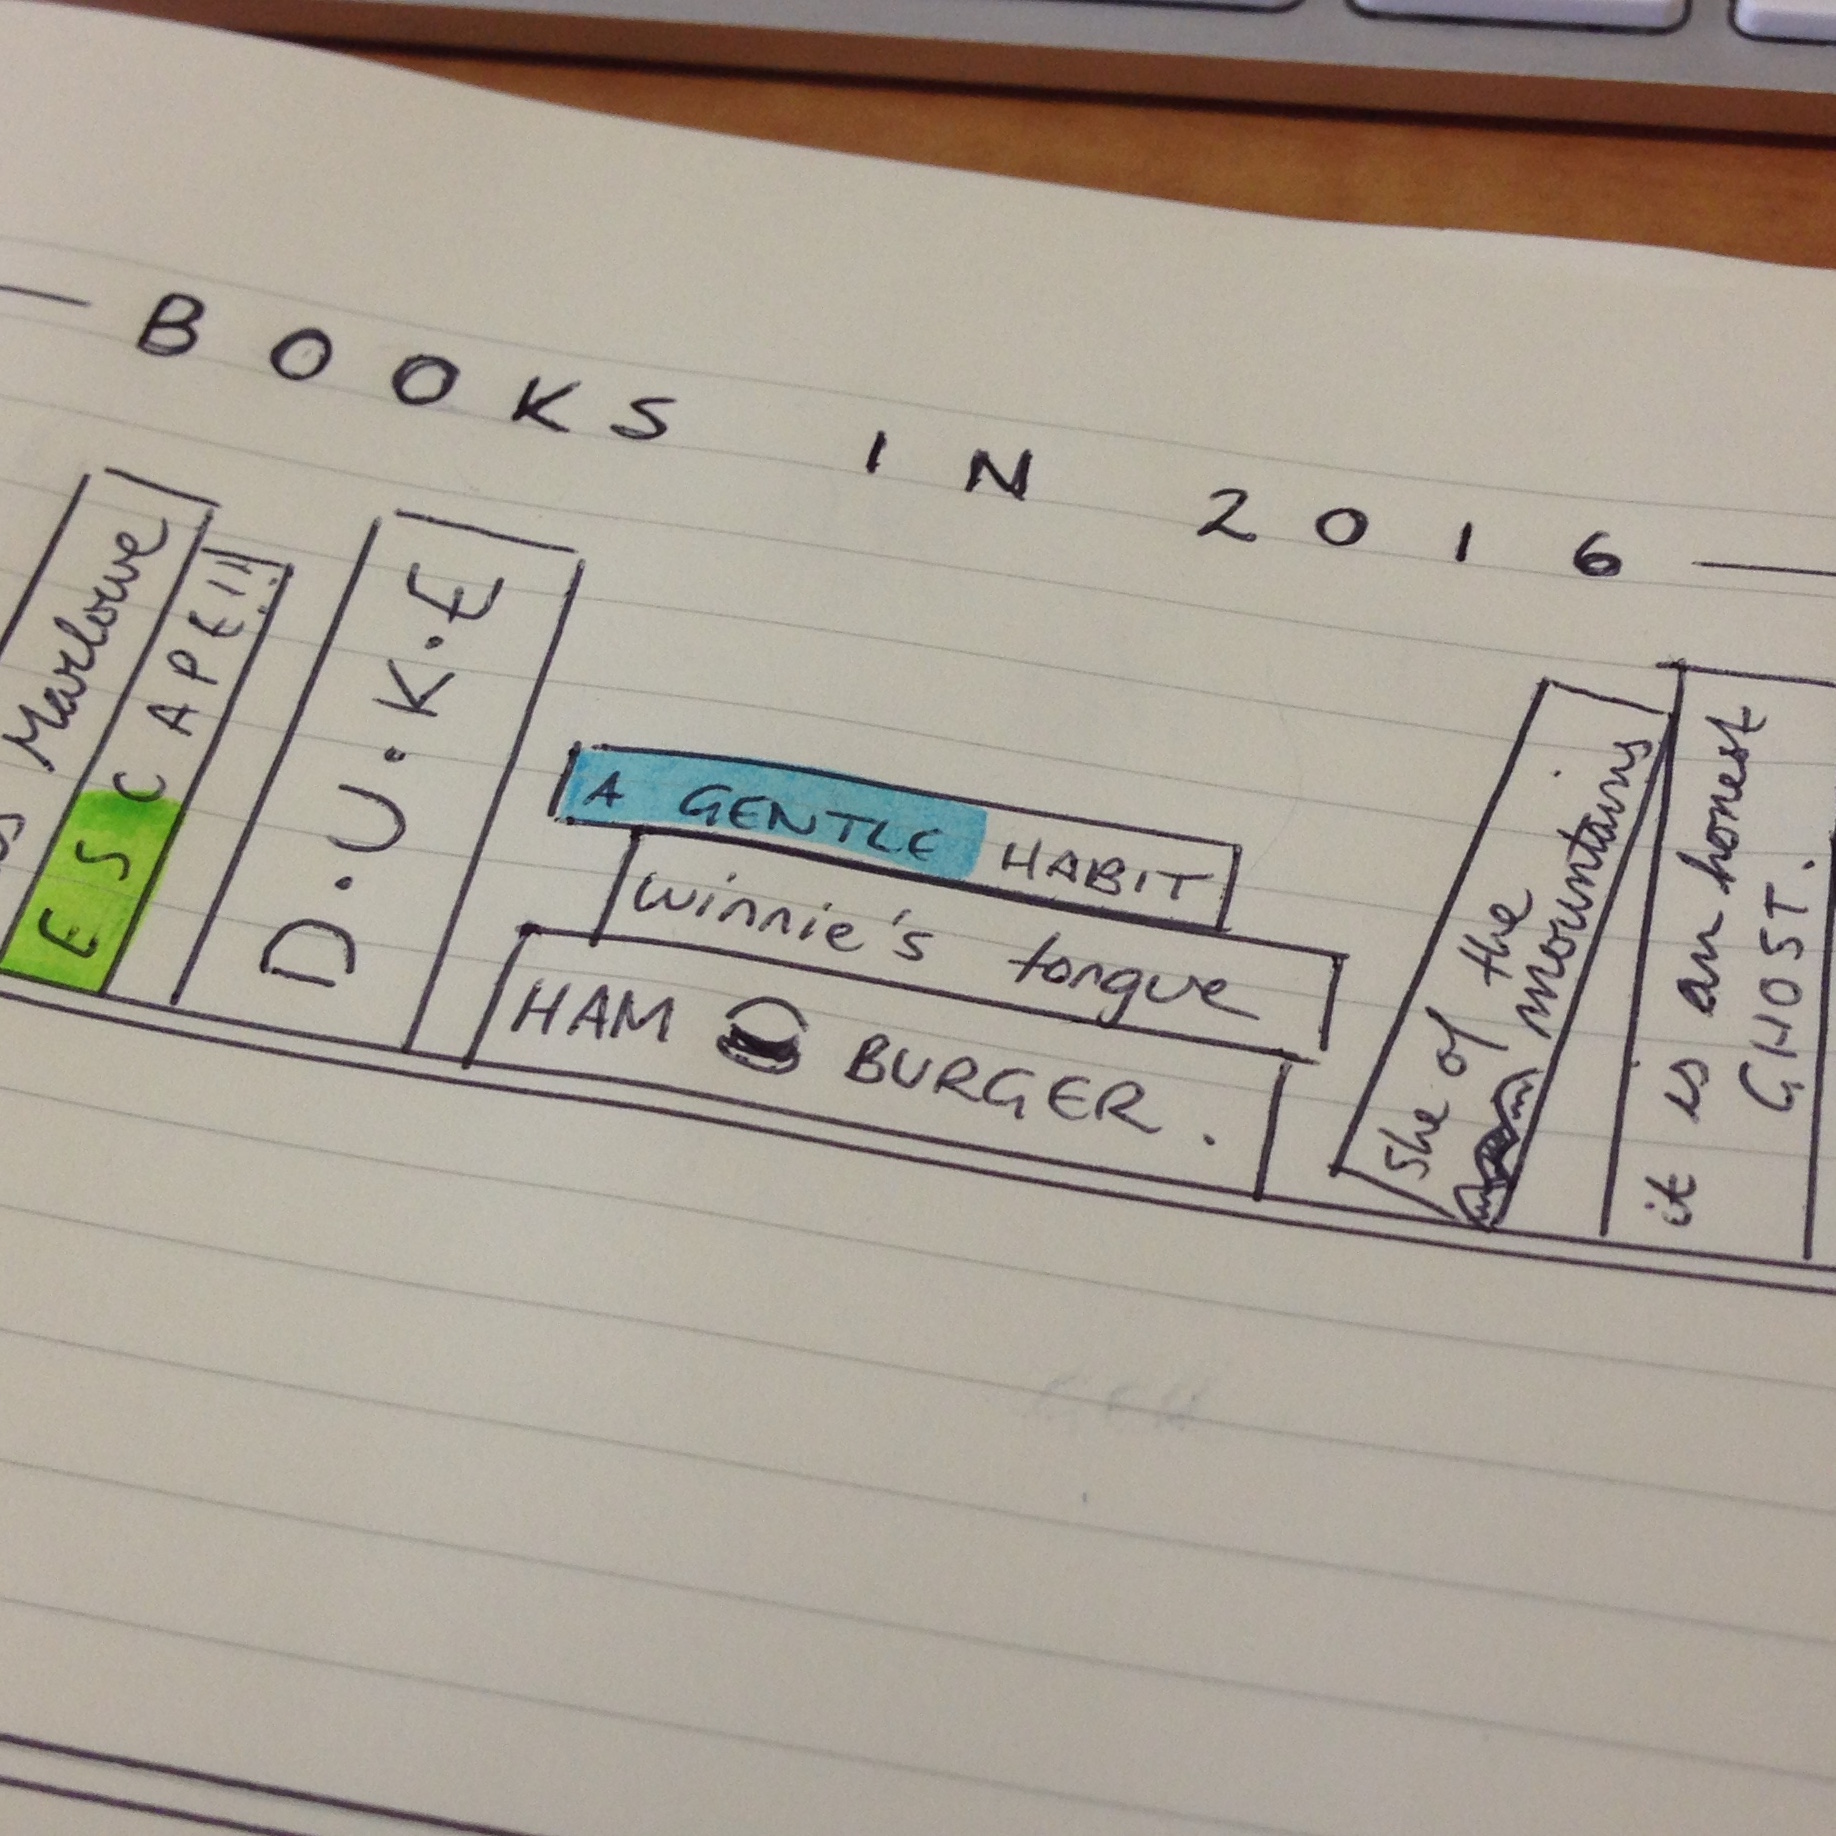 BOOKS IN 2016
Marlowe
ESCAPE!!
D.U.K.E
A GENTLE HABIT
winnie's tongue
HAM BURGER.
She of the
mountains
it is an honest
GHOST.